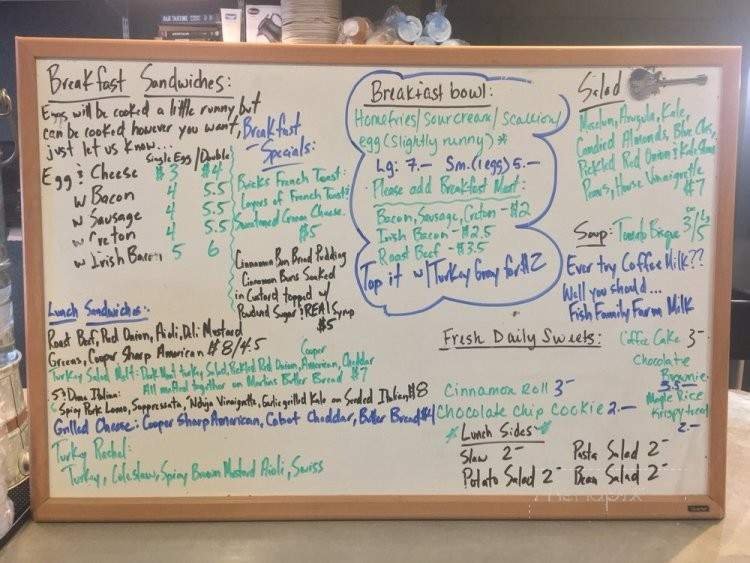 Breakfast Sandwiches:
Eggs will be cooked a little runny but
can be cooked however you want,
just let us know...
Single Egg / Double
Egg & Cheese $3 $4
w Bacon 4 5.5
w Sausage 4 5.5
w Creton 4 5.5
w Irish Bacon 5 6
Breakfast
Specials:
French Toast:
Layers of French Toast &
Sweetened Cream Cheese.
$5
Cinnamon Bun Bread Pudding
Cinnamon Buns Soaked
in Custard topped w/
Powdered Sugar & REAL Syrup
$5
Breakfast bowl:
Homefries/sour cream/scallion/
egg (slightly runny) *
Lg: 7.— Sm. (1 egg) 5.—
Please add Breakfast Meat:
Bacon, Sausage, Creton - $2
Irish Bacon - $2.5
Roast Beef - $3.5
Top it w/ Turkey Gravy for $2
Salad
Mesclun, Arugula, Kale,
Candied Almonds, Blue Chs,
Pickled Red Onion &
Pears, House Vinaigrette
$7
Soup: Tomato Bisque 3/5
Ever try Coffee Milk??
Well you should...
Fish Family Farm Milk
Lunch Sandwiches:
Roast Beef, Red Onion, Aioli, Deli Mustard
Greens, Cooper Sharp American $8/4.5
Turkey Salad Melt: Dark Meat turkey Salad, Pickled Red Onion, Cooper American, Cheddar
All melted together on Martins Butter Bread $7
Italian:
Spicy Pork Lomo, Soppressata, 'Nduja Vinaigrette, Garlic grilled Kale on Seeded Italian, $8
Grilled Cheese: Cooper Sharp American, Cabot Cheddar, Butter Bread $4
Turkey Rachel:
Turkey, Coleslaw, Spicy Brown Mustard Aioli, Swiss
Fresh Daily Sweets:
Coffee Cake 3—
Chocolate
Brownie
3.5—
Maple Rice
Krispy treat
2.—
Cinnamon Roll 3—
Chocolate Chip Cookie 2.—
Lunch Sides
Slaw 2—
Potato Salad 2—
Pasta Salad 2—
Bean Salad 2—
menupix